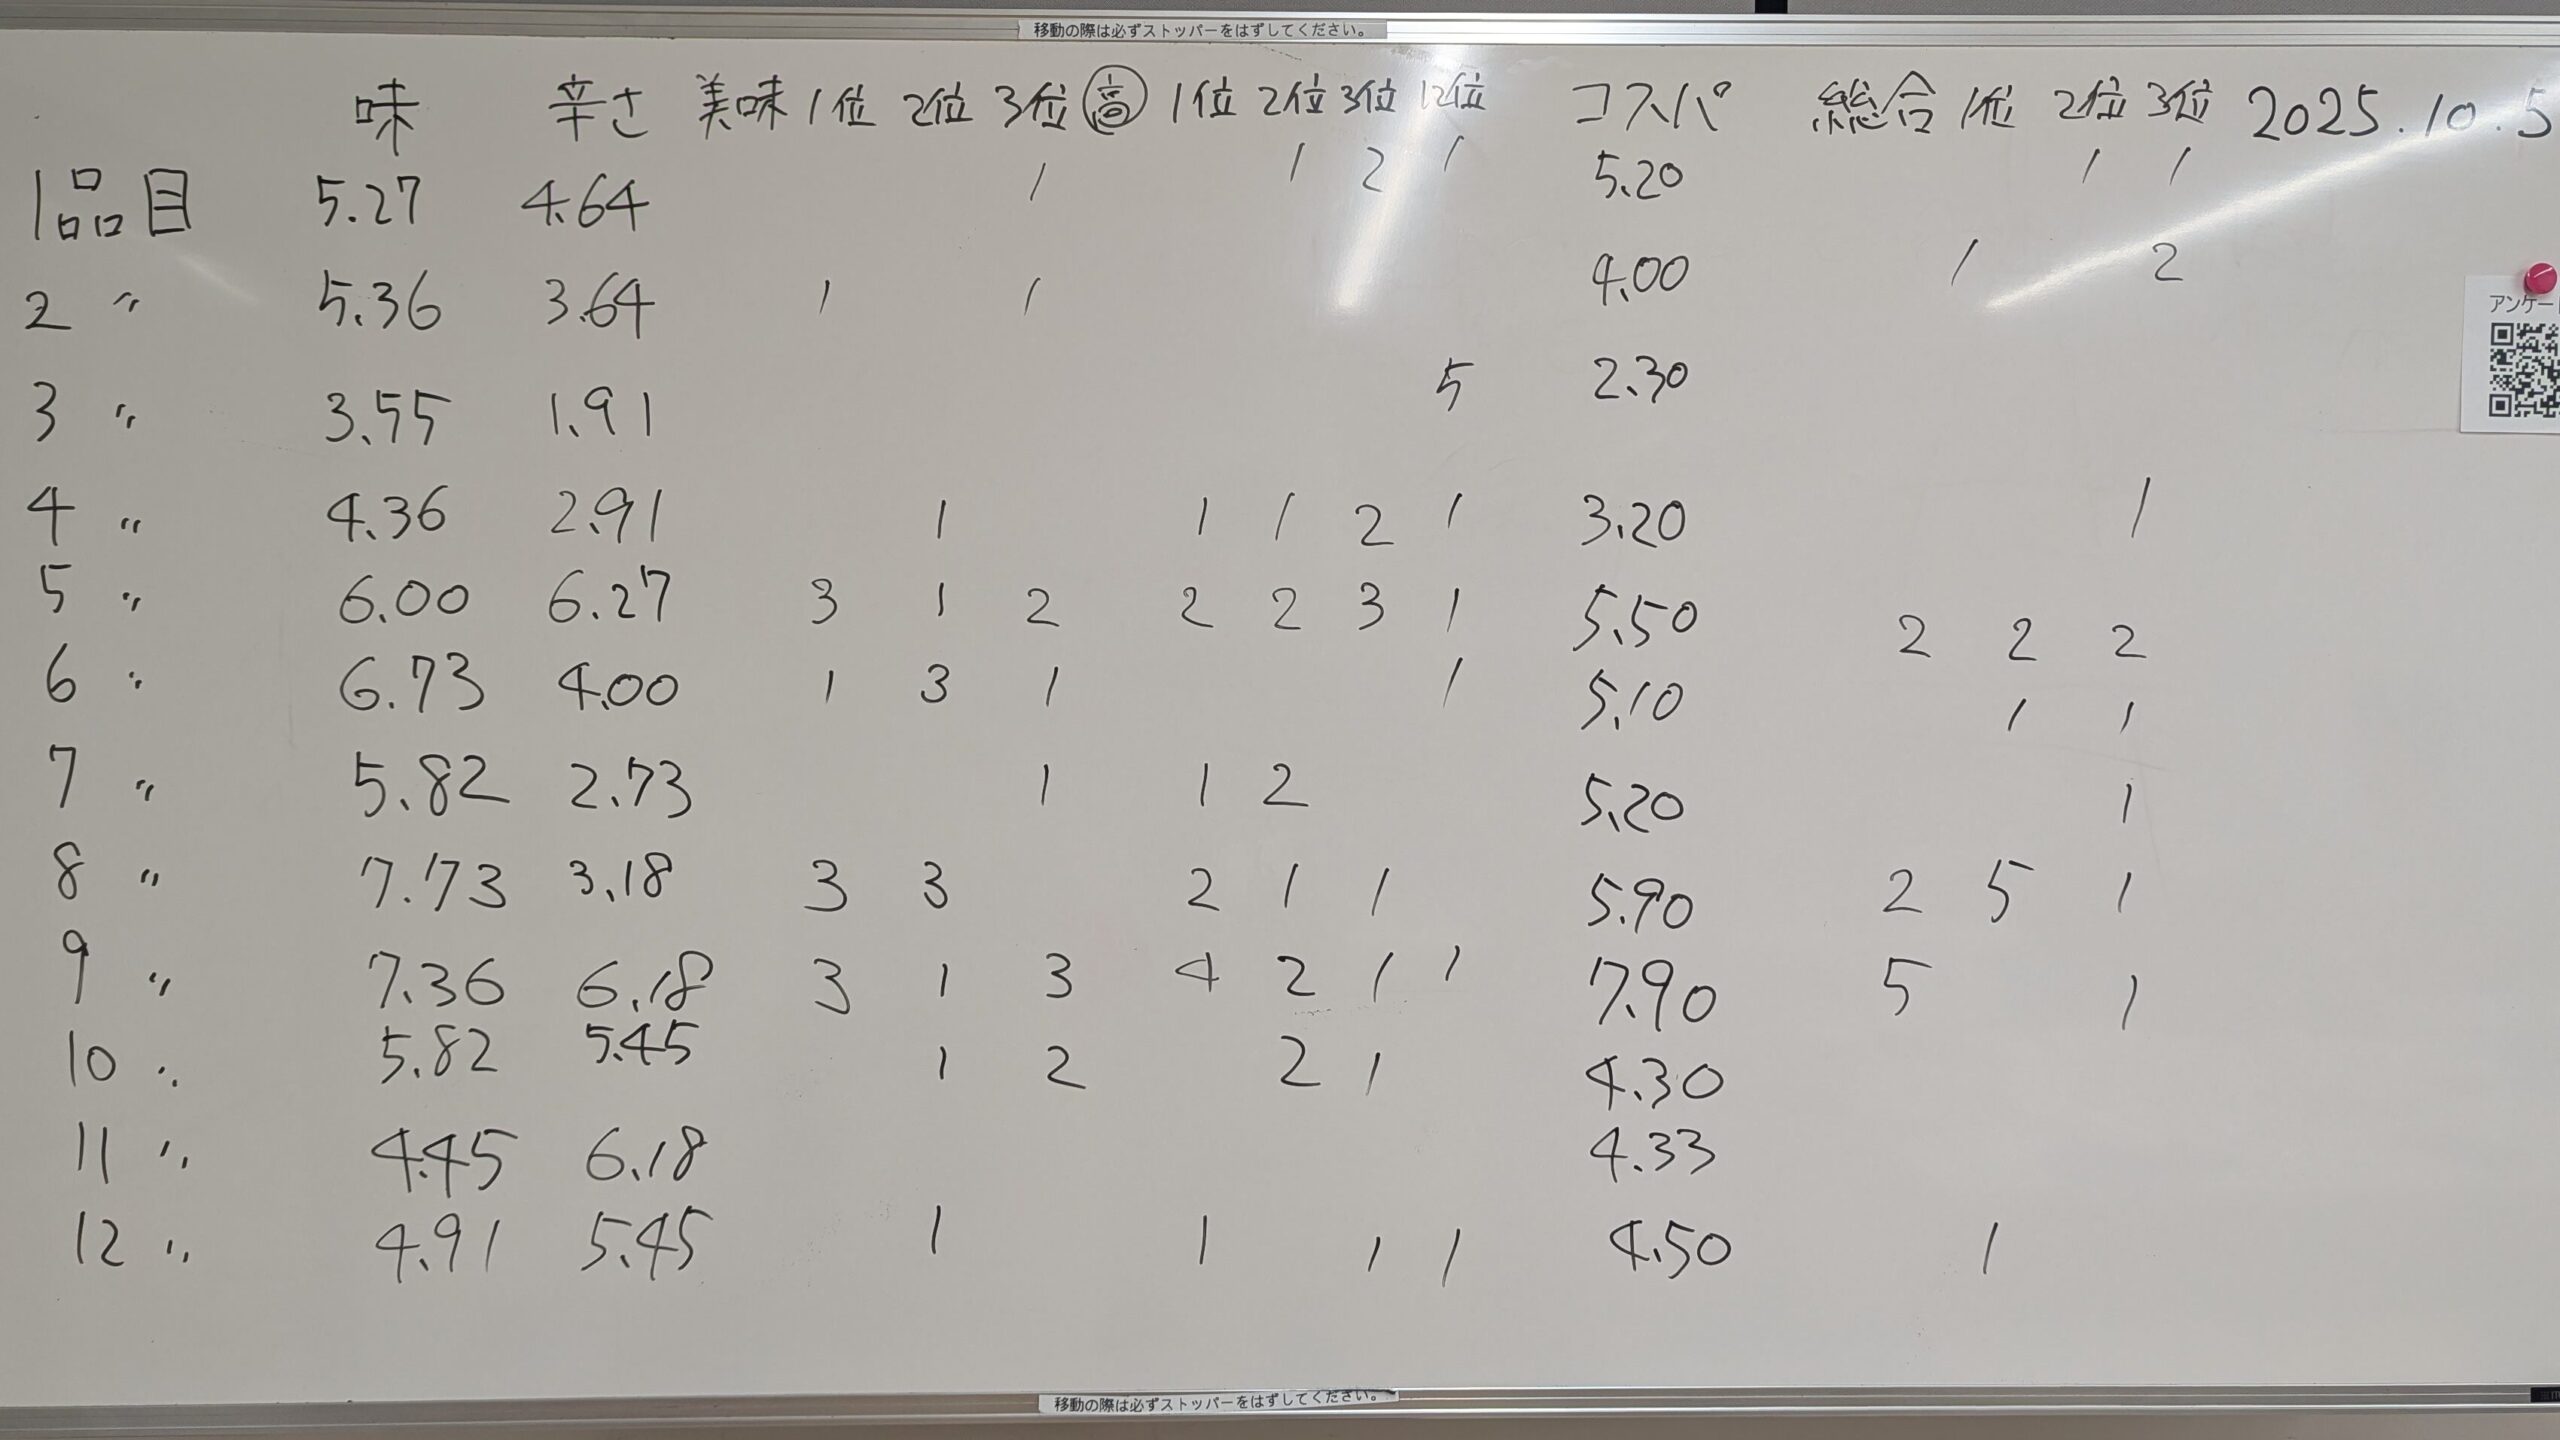 移動の際は必ずストッパーをはずしてください。
味 辛さ 美味 1位 2位 3位 高 1位 2位 3位 12位 コスパ 総合 1位 2位 3位 2025.10.5
1品目 5.27 4.64 1 1 2 1 5.20 1 1
2 〃 5.36 3.64 1 1 4.00 1 2
アンケー
3 〃 3.55 1.91 5 2.30
4 〃 4.36 2.91 1 1 1 2 1 3.20 1
5 〃 6.00 6.27 3 1 2 2 2 3 1 5.50 2 2 2
6 〃 6.73 4.00 1 3 1 1 5.10 1 1
7 〃 5.82 2.73 1 1 2 5.20 1
8 〃 7.73 3.18 3 3 2 1 1 5.90 2 5 1
9 〃 7.36 6.18 3 1 3 4 2 1 1 7.90 5 1
10 〃 5.82 5.45 1 2 2 1 4.30
11 〃 4.45 6.18 4.33
12 〃 4.91 5.45 1 1 1 1 4.50 1
移動の際は必ずストッパーをはずしてください。